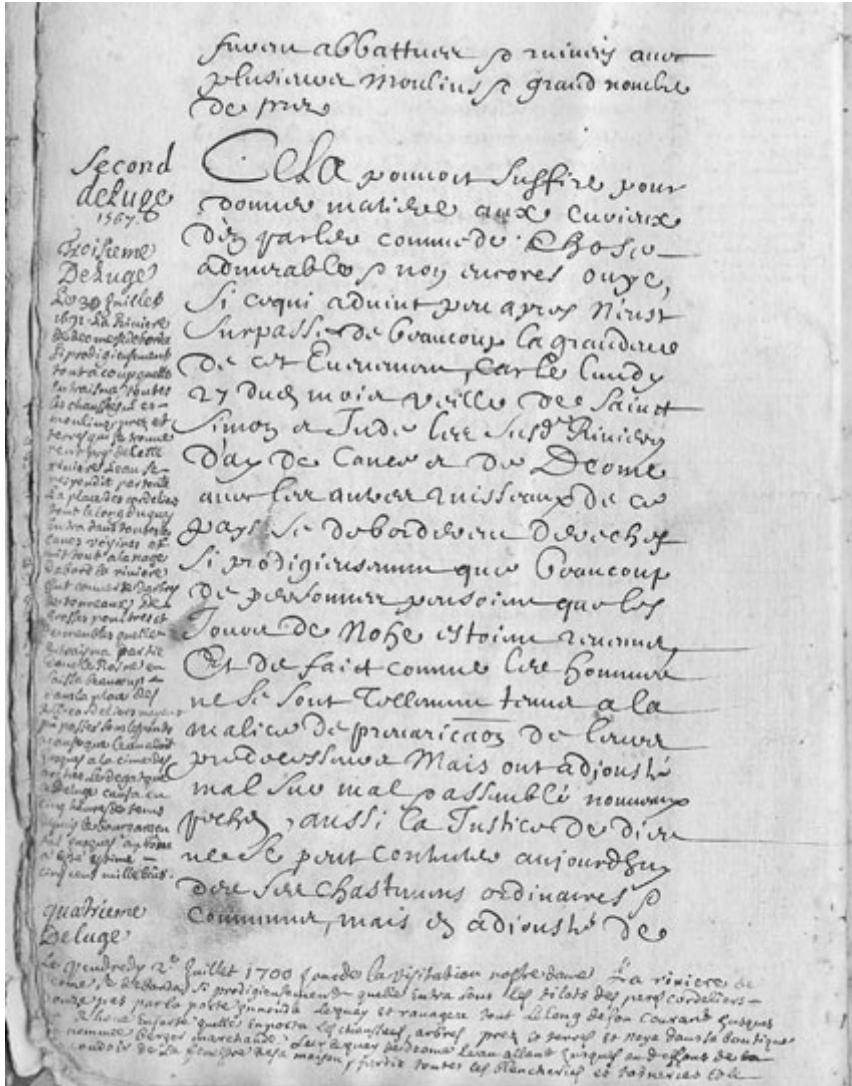 furent abbattues & ruinés avec
plusieurs moulins & grand nombre
de prez
Second
deluge
1567.
Cela pouvoit suffire pour
donner matiere aux curieux
d'en parler comme de chose
admirable & non encores ouye,
Si ce qui advint peu apres n'eust
surpassé de beaucoup la grandeur
de cet Evenement, car le lundy
27 dud mois veille de Sainct
Simon et Jude les susd Rivieres
d'ay de Cance et de Deome
avec les autres ruisseaux de ce
pays se deborderent derechef
si prodigieusement que beaucoup
de personnes pensoient que les
Jours de Nohe estoient revenus,
Et de faict comme les hommes
ne se sont tellement tenus a la
malice de prevarica͠on de leurs
predecesseurs Mais ont adjousté
mal sur mal & assemblé nouveaux
pechez, aussi la Justice de dieu
ne se peut contenter aujourdhuy
de ses chastimens ordinaires &
communs, mais en adjousté de
Troisieme
Deluge
Le 30 Juillet
1691. La Riviere
de deome se deborda
si prodigieusement
tout a coup quelle
entraisna toutes
les chaussées
moulins, prez et
terres qui se trouve
de cette
riviere Leau se
respondit par toute
La place des cordeliers
tout le long du quay
Entra dans toutes les
caves voysines et
mit tout a la nage
d'abord la riviere
fut couverte d'arbres
de tonneaux, de
grosses poultres et
de meubles quelle
entraisna partie
dans le Rosne en
laissa beaucoup
dans la place des
cordeliers
leau alloit
jusques a la cime des
Le degat que
ce Deluge causa en
cinq heures de temps
depuis le bourgargental
jusques au rosne
a esté estimé
cinq cent mille livres.
quatrieme
Deluge
Le vendredy 2e Juillet 1700 jour de la visitation nostre dame La riviere de
deome se deborda si prodigieusement quelle entra sous les tilots des peres cordeliers
par la porte innonda le quay et ravagea tout le long de son courant jusques
au Rhone Ensorte quelle emporta les chaussées, arbres, prez et terres et noya dans la boutique
le nommé Berger marchand sur le quay de deome leau allant jusques au dessus de la
de la fenestre de sa maison, perdit toutes les blancheries et tanneries